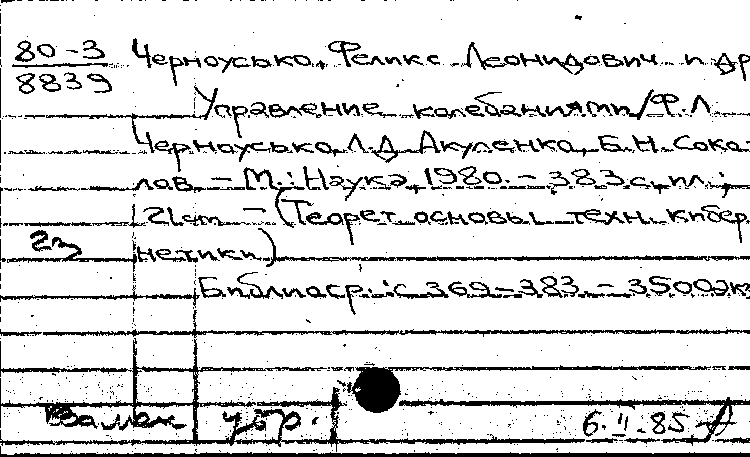 80-3 Черноусько, Феликс Леонидович и др
8839
Управление колебаниями/Ф.Л
Черноусько, Л.Д Акуленко, Б.Н. Соко-
лов. - М.: Наука, 1980. - 383 с., ил.;
21cm - (Теорет основы техн. кибер
2э нетики)
Библиогр.: с 369-383. - 3500эк
Замен убр. 6.II.85